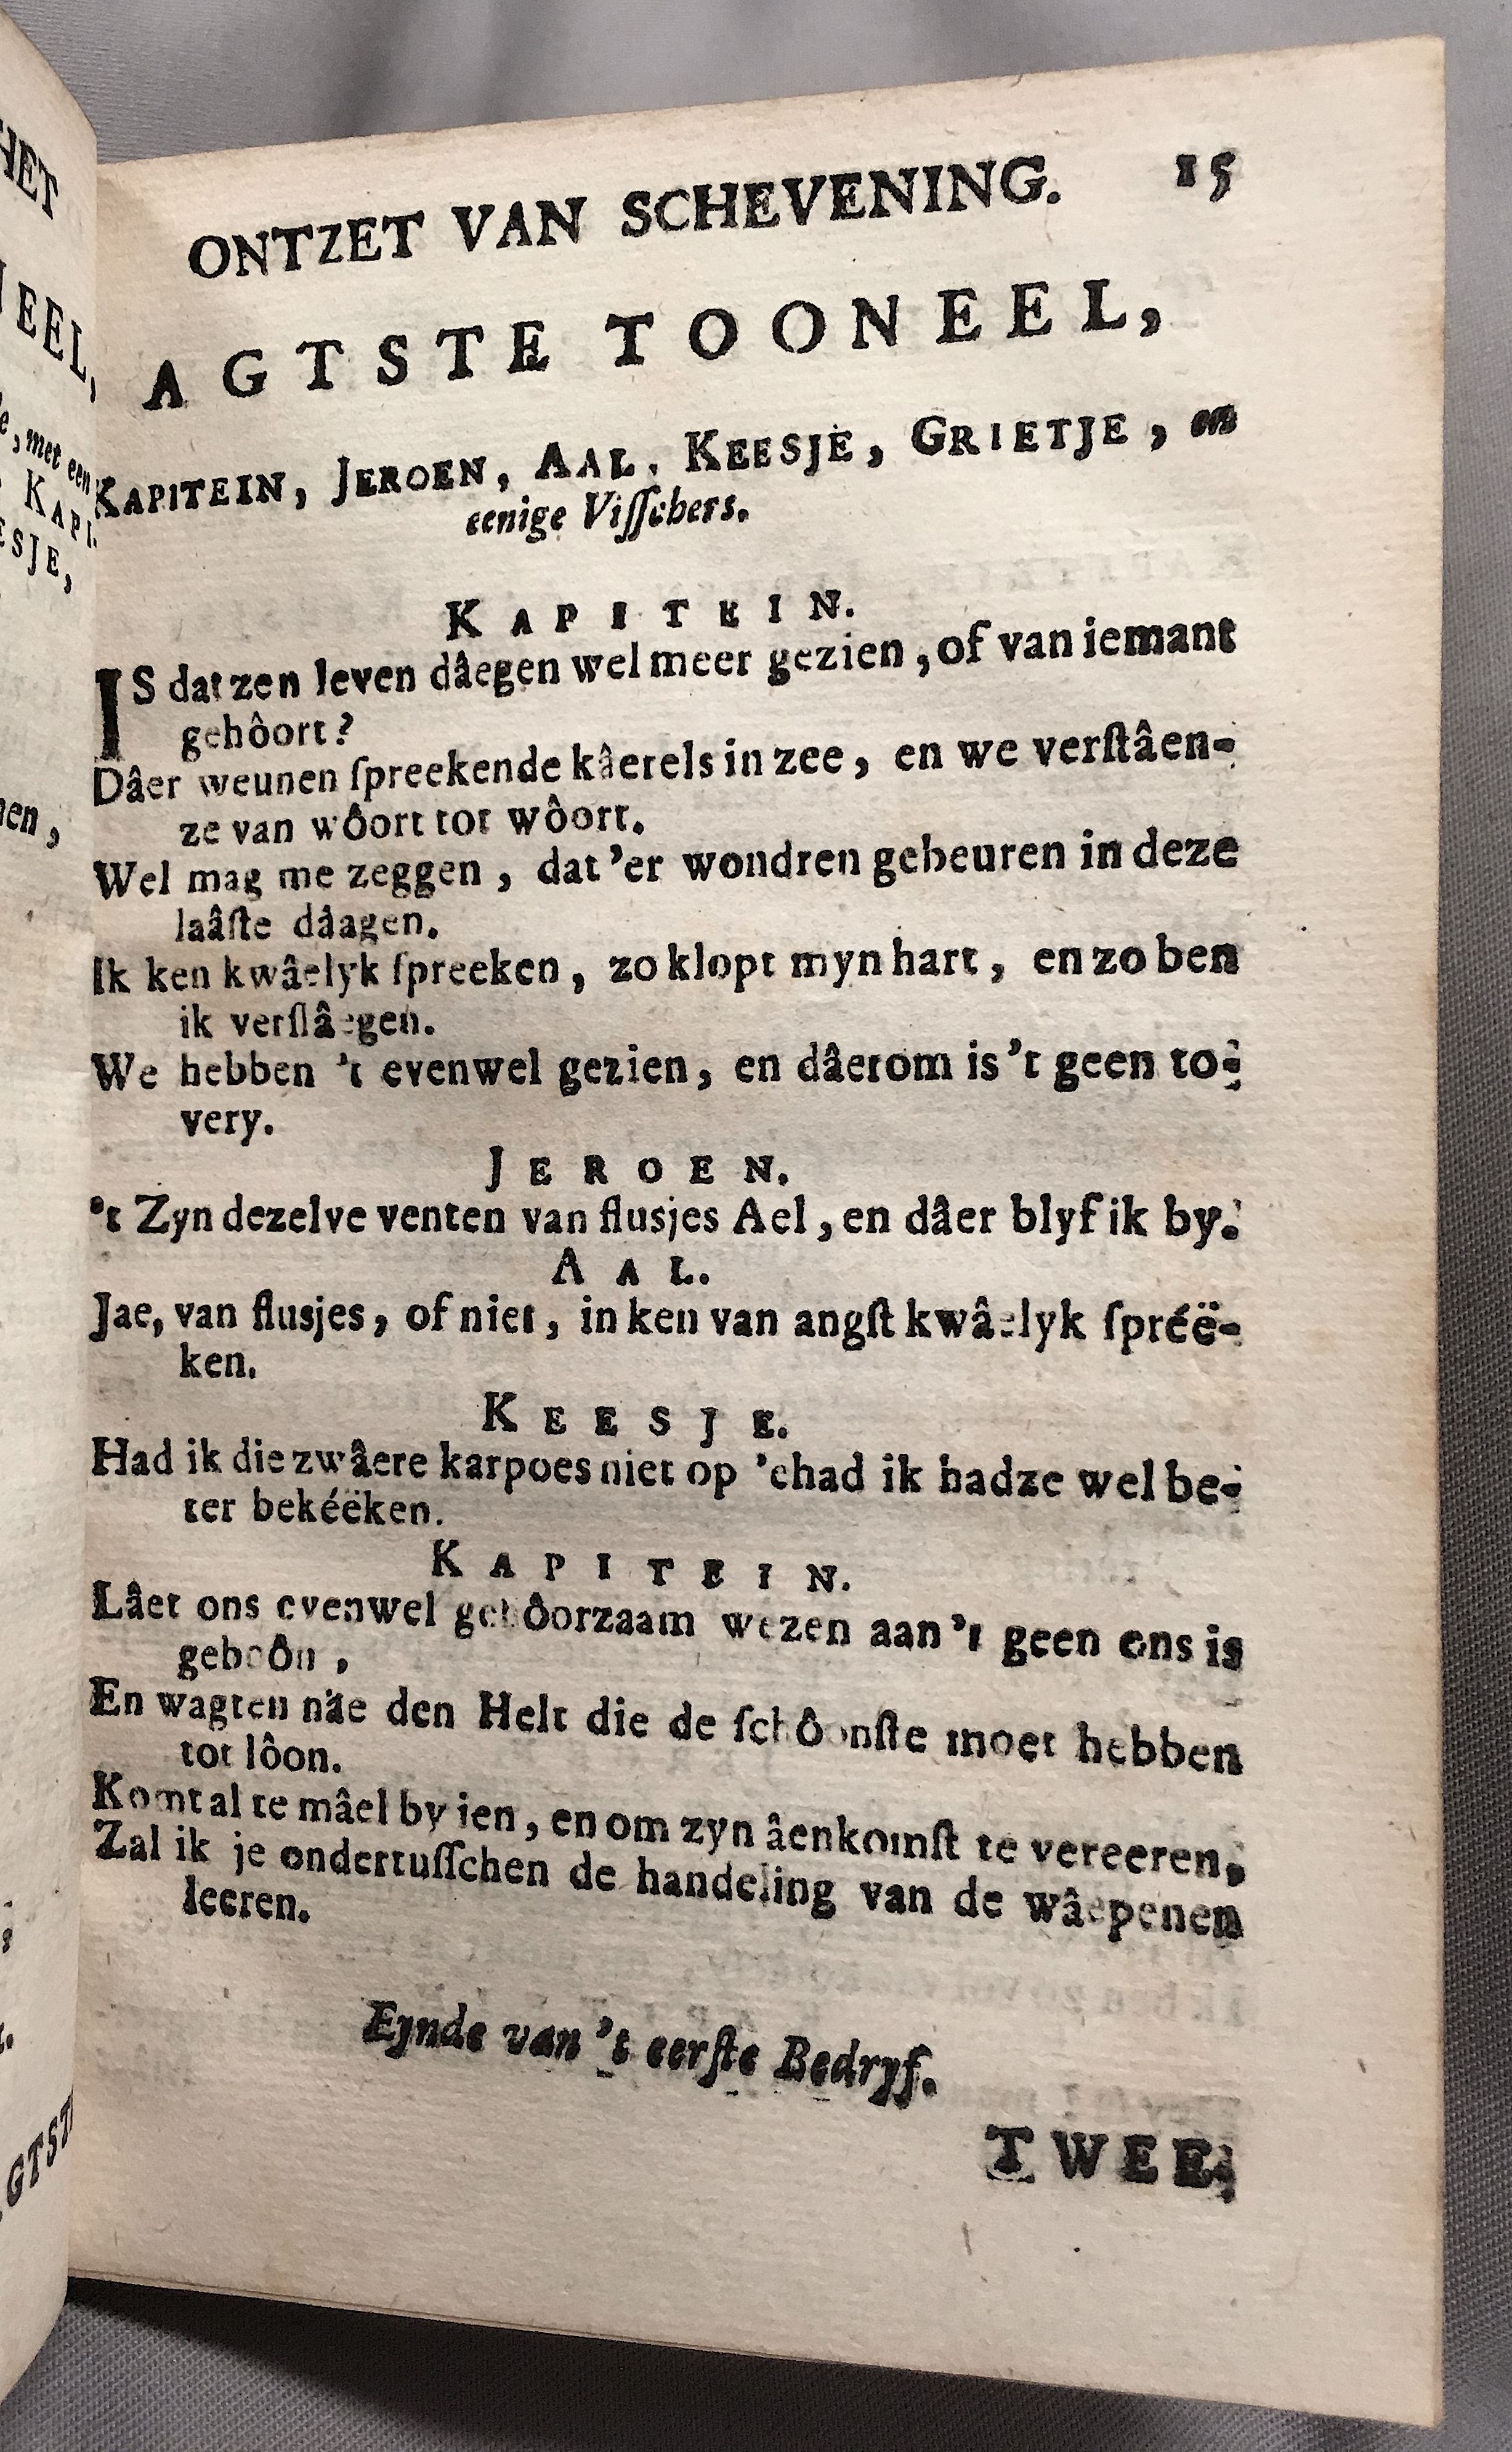 ONTZET VAN SCHEVENING. 15
AGTSTE TOONEEL,
KAPITEIN, JEROEN, AAL, KEESJE, GRIETJE, en
eenige Viſſchers.
KAPITEIN.
IS dat zen leven dâegen wel meer gezien, of van iemant
gehôort?
Dâer weunen ſpreekende kâerels in zee, en we verſtâen-
ze van wôort tot wôort.
Wel mag me zeggen, dat 'er wondren gebeuren in deze
laâſte dâagen.
Ik ken kwâelyk ſpreeken, zo klopt myn hart, en zo ben
ik verſlâegen.
We hebben 't evenwel gezien, en dâerom is 't geen to-
very.
JEROEN.
't Zyn dezelve venten van fluſjes Ael, en dâer blyf ik by.
AAL.
Jae, van flusjes, of niet, in ken van angſt kwâelyk ſpréë-
ken.
KEESJE.
Had ik die zwâere karpoes niet op 'ehad ik hadze wel be-
ter bekéëken.
KAPITEIN.
Lâet ons evenwel gehôorzaam wezen aan 't geen ons is
geboôn,
En wagten näe den Helt die de ſchôonſte moet hebben
tot lôon.
Komt al te mâel by ien, en om zyn âenkomſt te vereeren,
Zal ik je ondertuſſchen de handeling van de wâepenen
leeren.
Eynde van 't eerſte Bedryf.
TWEE-
HET
NEEL,
met een
KAPI-
ESJE,
nen,
AGTSTE